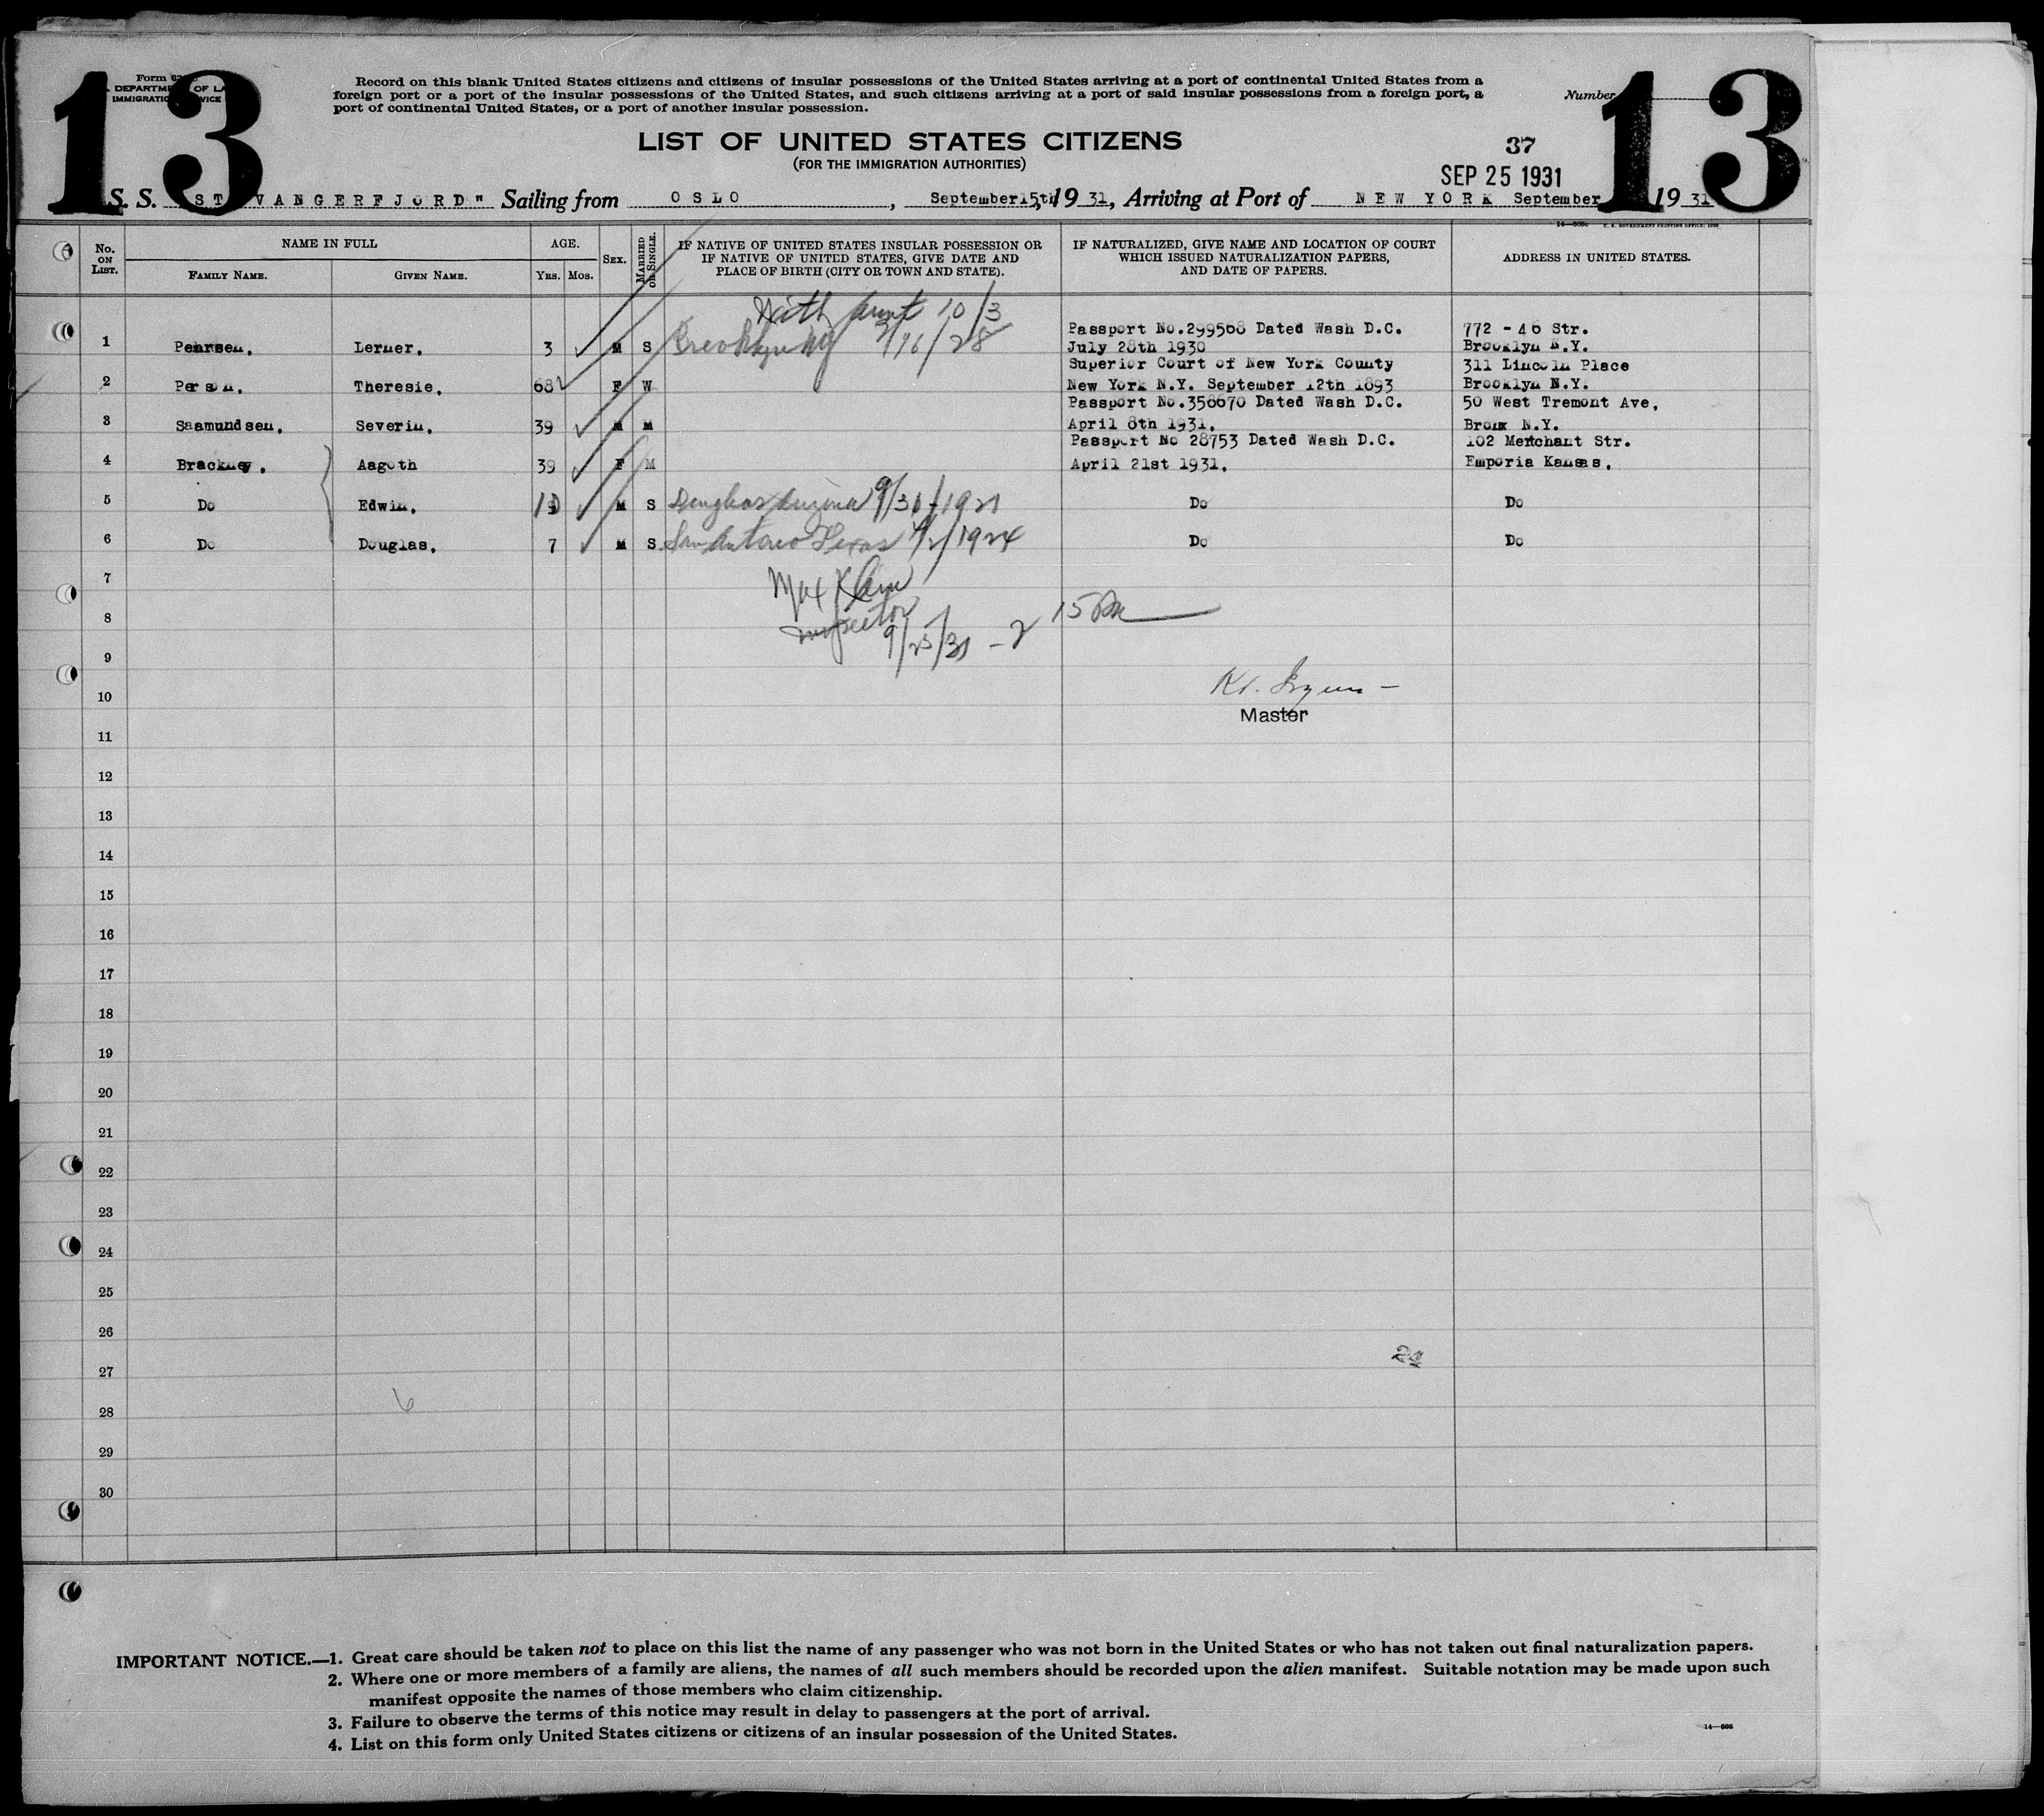 13
13
Form 62
DEPARTMENT OF LA
IMMIGRATION SERVICE
Record on this blank United States citizens and citizens of insular possessions of the United States arriving at a port of continental United States from a
foreign port or a port of the insular possessions of the United States, and such citizens arriving at a port of said insular possessions from a foreign port, a
port of continental United States, or a port of another insular possession.
Number
LIST OF UNITED STATES CITIZENS
(FOR THE IMMIGRATION AUTHORITIES)
37
SEP 25 1931
S. S. ST VANGERFJORD" Sailing from OSLO, September 15th, 1931, Arriving at Port of NEW YORK September 1931
No. ON LIST. NAME IN FULL AGE. SEX. MARRIED OR SINGLE. IF NATIVE OF UNITED STATES INSULAR POSSESSION OR IF NATIVE OF UNITED STATES, GIVE DATE AND PLACE OF BIRTH (CITY OR TOWN AND STATE). IF NATURALIZED, GIVE NAME AND LOCATION OF COURT WHICH ISSUED NATURALIZATION PAPERS, AND DATE OF PAPERS. ADDRESS IN UNITED STATES.
FAMILY NAME. GIVEN NAME. YRS. MOS.
With Aunt 10/3
Passport No.299568 Dated Wash D.C. 772 - 46 Str.
1 Pehrsen, Lerner, 3 M S Brooklyn NY 3/16/28 July 28th 1930 Brooklyn N.Y.
Superior Court of New York County 311 Lincoln Place
2 Person, Theresie, 68 F W New York N.Y. September 12th 1893 Brooklyn N.Y.
Passport No.358670 Dated Wash D.C. 50 West Tremont Ave,
3 Saamundsen, Severin, 39 M M April 8th 1931. Bronx N.Y.
Passport No 28753 Dated Wash D.C. 102 Merchant Str.
4 Brackney, Aagoth 39 F M April 21st 1931. Emporia Kansas.
5 Do Edwin, 10 M S Douglas Arizona 9/30/1921 Do Do
6 Do Douglas, 7 M S San Antonio Texas 9/2/1924 Do Do
7 Max Klein
8 Inspector
9/25/31 - 2 15 PM
9
Kr. Irgens
10
Master
11
12
13
14
15
16
17
18
19
20
21
22
23
24
25
26
27
28
6
29
30
IMPORTANT NOTICE.—1. Great care should be taken not to place on this list the name of any passenger who was not born in the United States or who has not taken out final naturalization papers.
2. Where one or more members of a family are aliens, the names of all such members should be recorded upon the alien manifest. Suitable notation may be made upon such
manifest opposite the names of those members who claim citizenship.
3. Failure to observe the terms of this notice may result in delay to passengers at the port of arrival.
4. List on this form only United States citizens or citizens of an insular possession of the United States.